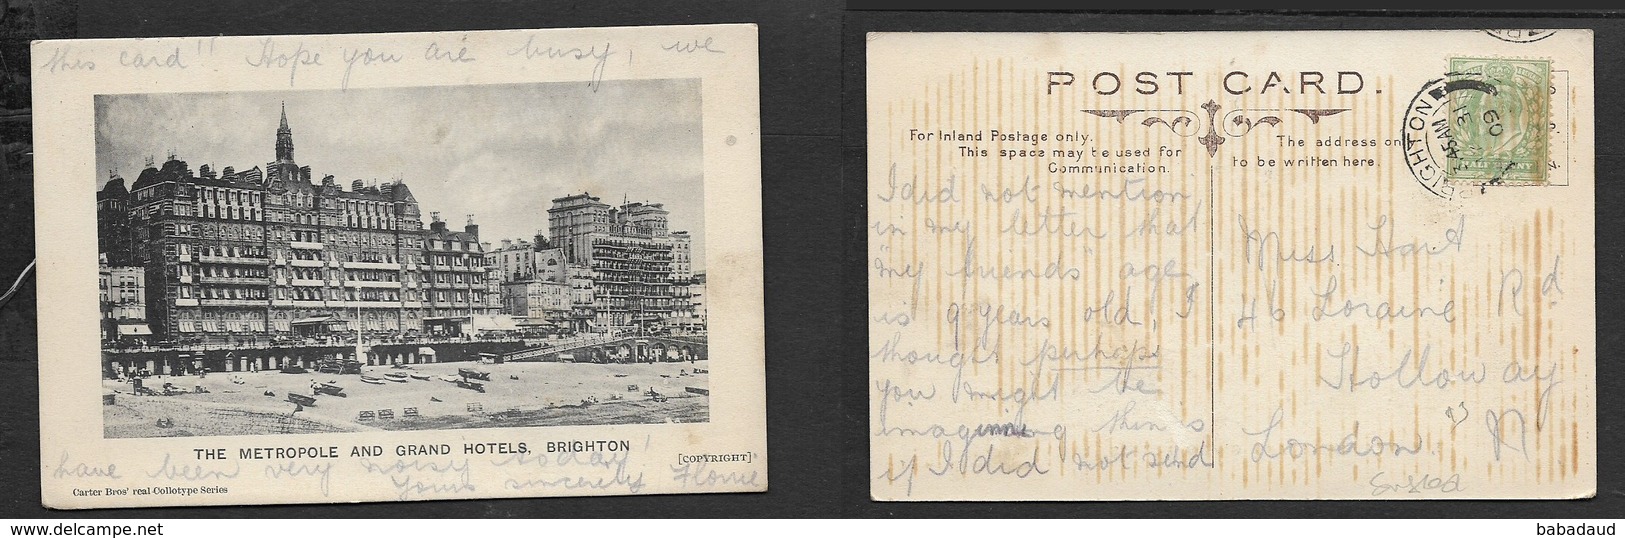 this card!! Hope you are busy, we
THE METROPOLE AND GRAND HOTELS, BRIGHTON
[COPYRIGHT]
have been very noisy today!
Yours sincerely Florrie
Carter Bros' real Collotype Series
POST CARD.
For Inland Postage only.
This space may be used for
Communication.
The address only
to be written here.
BRIGHTON
45AM
31
09
HALF PENNY
I did not mention
in my letter that
"my friends" age,
is 9 years old, I
thought perhaps
you might be
imagining things
if I did not send
Miss Hart
46 Loraine Rd
Holloway
London N
93
babadaud